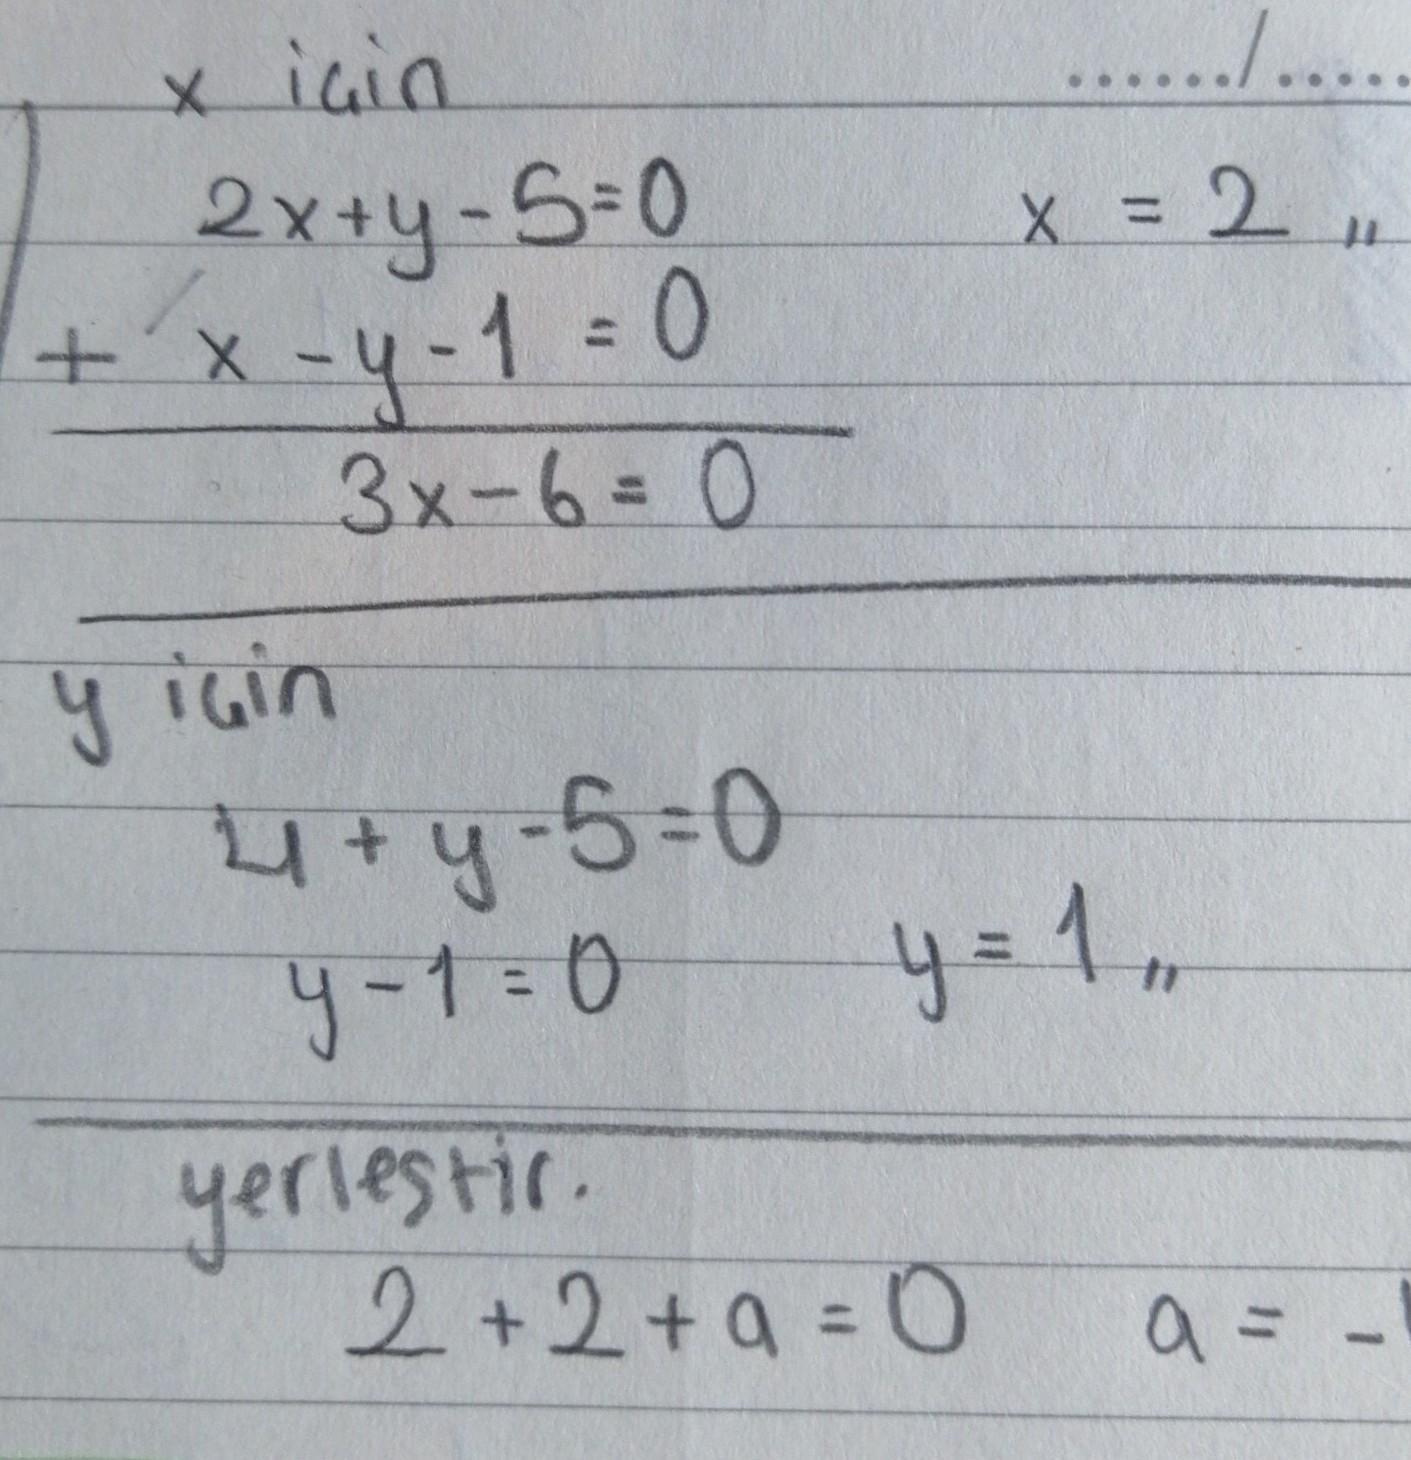 x için ....../.....
2x+y-5=0 x = 2 ,,
+ x - y - 1 = 0
3x - 6 = 0
y için
4 + y - 5 = 0
y - 1 = 0 y = 1 ,,
yerleştir.
2 + 2 + a = 0 a = -